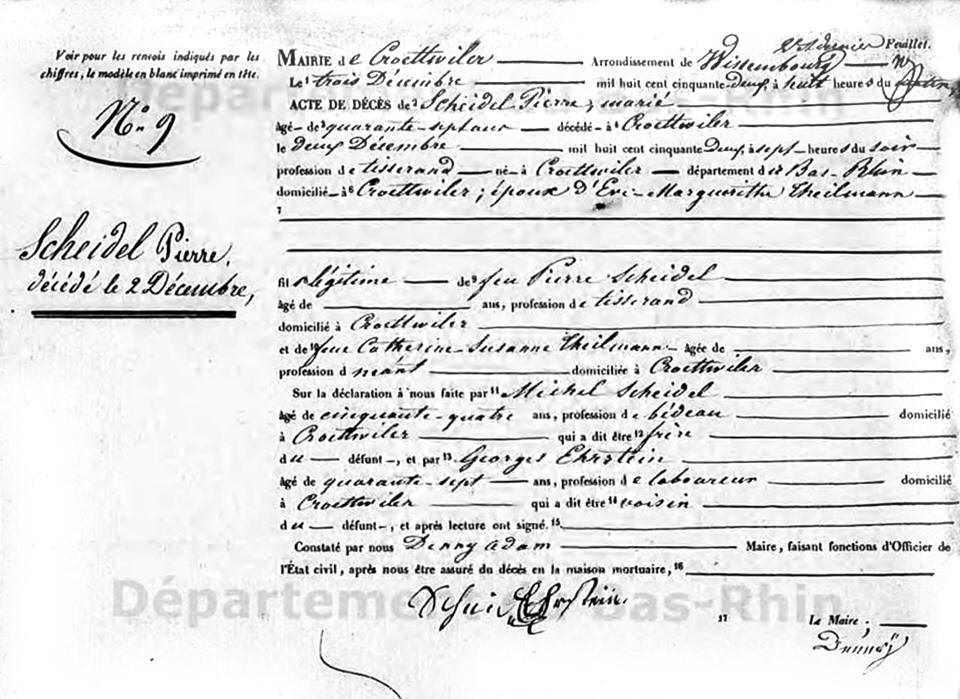 2e & dernier Feuillet.
Voir pour les renvois indiqués par les
chiffres, le modèle en blanc imprimé en tête.
Nº 9
Scheidel Pierre,
décédé le 2 Décembre,
MAIRIE de Croettwiler Arrondissement de Wissembourg
Le 1 trois Décembre mil huit cent cinquante deux, à huit heures du
ACTE DE DÉCÈS de 2 Scheidel Pierre, marié
âgé de 3 quarante-sept ans décédé à 4 Croettwiler
le deux Décembre mil huit cent cinquante deux à sept heures du soir
profession de tisserand né à Croettwiler département du 5 Bas-Rhin
domicilié à 6 Croettwiler; époux d'Eve-Marguerithe Theilmann
7
fils 8 légitime de 9 feu Pierre Scheidel
âgé de ans, profession de tisserand
domicilié à Croettwiler
et de 10 feue Catherine-Susanne Theilmann âgée de ans,
profession d néant domiciliée à Croettwiler
Sur la déclaration à nous faite par 11 Michel Scheidel
âgé de cinquante-quatre ans, profession de bédeau domicilié
à Croettwiler qui a dit être 12 frère
du défunt, et par 13 Georges Ehrstein
âgé de quarante-sept ans, profession de laboureur domicilié
à Croettwiler qui a dit être 14 voisin
du défunt, et après lecture ont signé. 15
Constaté par nous Denny Adam Maire, faisant fonctions d'Officier de
l'État civil, après nous être assuré du décès en la maison mortuaire, 16
Ehrstein.
17 Le Maire;
Denny
Département du Bas-Rhin
Département du Bas-Rhin